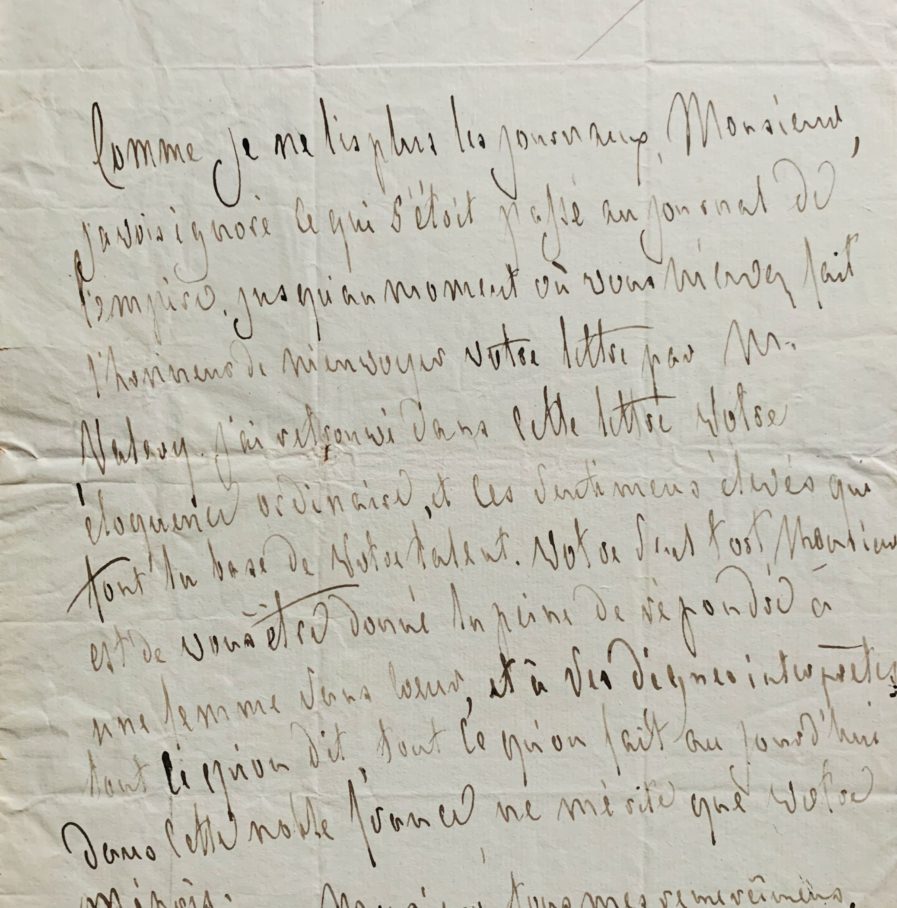 Comme je ne lis plus les journaux, Monsieur,
j'avois ignoré ce qui s'étoit passé au journal de
l'empire, jusqu'au moment où vous m'avez fait
l'honneur de m'envoyer votre lettre par Mr.
Valery. j'ai retrouvé dans cette lettre votre
éloquence ordinaire, et ces sentimens élevés qui
font la base de votre talent. votre seul tort Monsieur
est de vous être donné la peine de répondre à
une femme sans coeur, et à ses dignes interprètes
tout ce qu'on dit, tout ce qu'on fait aujourd'hui
dans cette noble france ne mérite que votre
mépris. tous mes remerciemens,